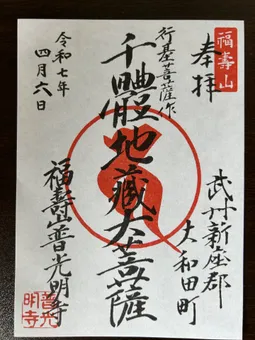 福壽山
奉拝
武州新座郡
大和田町
行基菩薩作
千體地藏大菩薩
福壽山普光明寺
令和七年
四月六日
普光
明寺